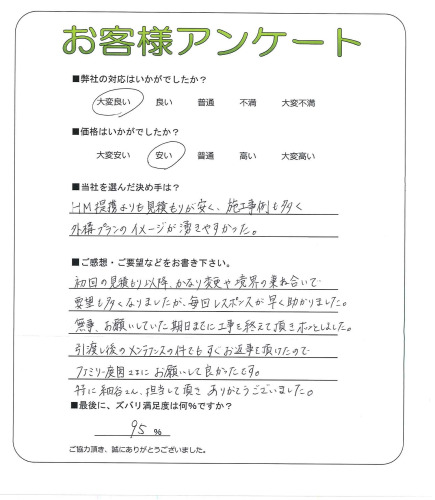 お客様アンケート
■弊社の対応はいかがでしたか？
大変良い 良い 普通 不満 大変不満
■価格はいかがでしたか？
大変安い 安い 普通 高い 大変高い
■当社を選んだ決め手は？
HM提携よりも見積もりが安く、施工事例も多く
外構プランのイメージが湧きやすかった。
■ご感想・ご要望などをお書き下さい。
初回の見積もり以降、かなり変更や境界の兼ね合いで
要望も多くなりましたが、毎回レスポンスが早く助かりました。
無事、お願いしていた期日までに工事を終えて頂きホッとしました。
引渡し後のメンテナンスの件でもすぐお返事を頂けたので
ファミリー庭園さまにお願いして良かったです。
特に細谷さん、担当して頂き ありがとうございました。
■最後に、ズバリ満足度は何％ですか？
95 ％
ご協力頂き、誠にありがとうございました。